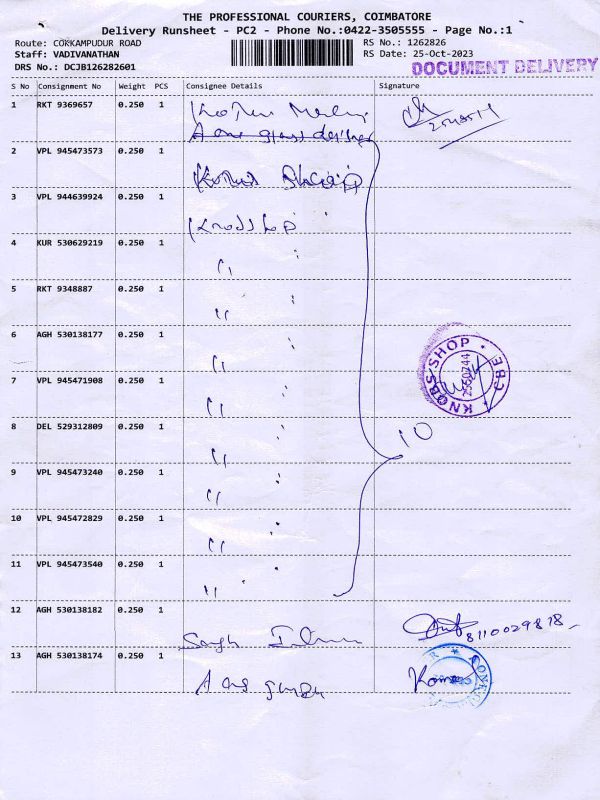 THE PROFESSIONAL COURIERS, COIMBATORE
Delivery Runsheet - PC2 - Phone No.:0422-3505555 - Page No.:1
Route: COKKAMPUDUR ROAD
RS No.: 1262826
Staff: VADIVANATHAN
RS Date: 25-Oct-2023
DRS No.: DCJB126282601
DOCUMENT DELIVERY
S No Consignment No Weight PCS Consignee Details Signature
1 RKT 9369657 0.250 1
2 VPL 945473573 0.250 1
3 VPL 944639924 0.250 1
4 KUR 530629219 0.250 1
5 RKT 9348887 0.250 1
6 AGH 530138177 0.250 1
7 VPL 945471908 0.250 1
KNOBS SHOP * CBE *
8 DEL 529312809 0.250 1
10
9 VPL 945473240 0.250 1
10 VPL 945472829 0.250 1
11 VPL 945473540 0.250 1
12 AGH 530138182 0.250 1
8110029818
13 AGH 530138174 0.250 1